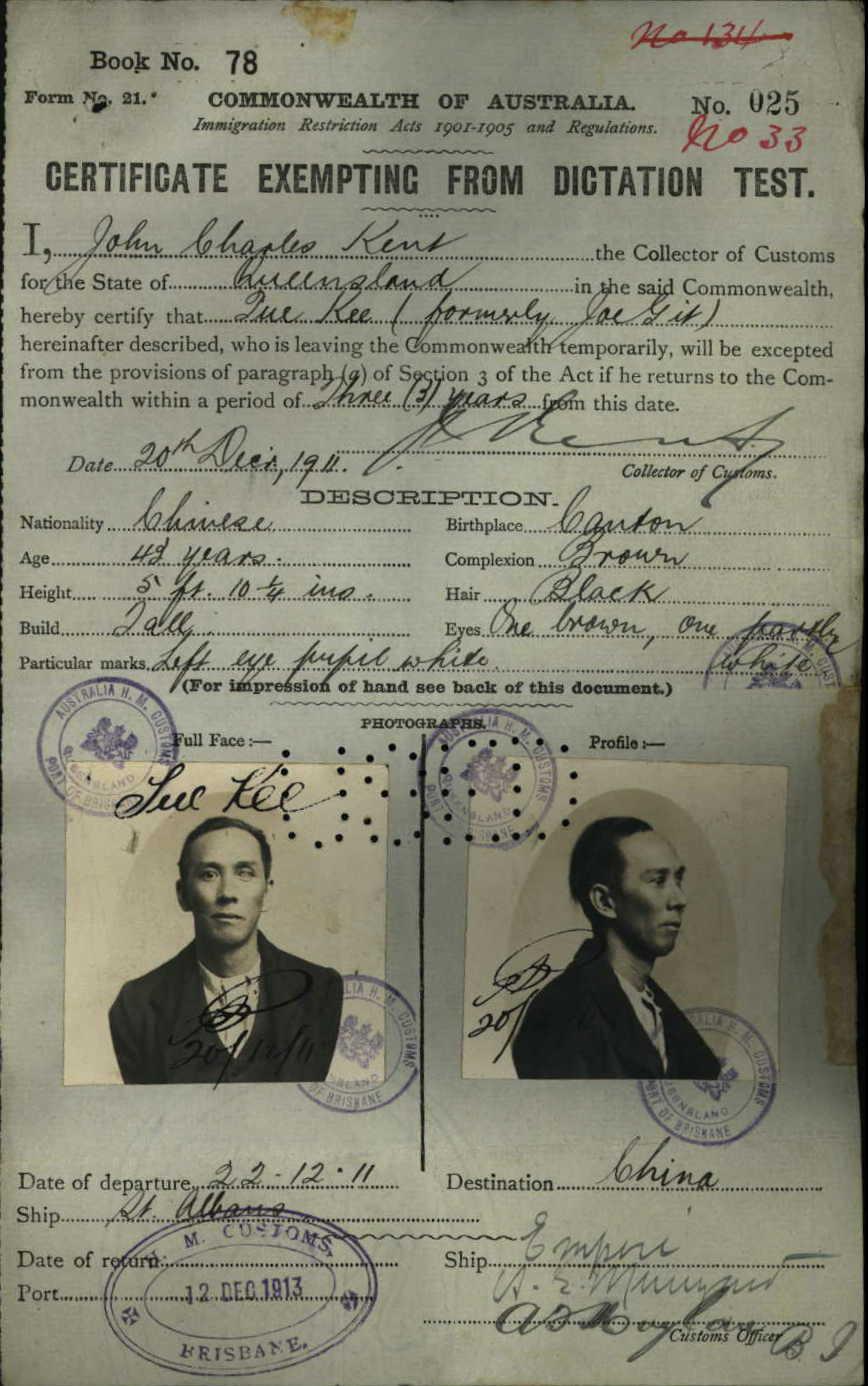 No 134
Book No. 78
Form No. 21. COMMONWEALTH OF AUSTRALIA. No. 025
Immigration Restriction Acts 1901-1905 and Regulations. No 33
CERTIFICATE EXEMPTING FROM DICTATION TEST.
I, John Charles Kent the Collector of Customs
for the State of Queensland in the said Commonwealth,
hereby certify that Sue Kee (formerly Joe Git)
hereinafter described, who is leaving the Commonwealth temporarily, will be excepted
from the provisions of paragraph (a) of Section 3 of the Act if he returns to the Com-
monwealth within a period of Three (3) years from this date.
Date 20th Decr, 1911. Kent
Collector of Customs.
DESCRIPTION.
Nationality Chinese Birthplace Canton
Age 48 years. Complexion Brown
Height 5 ft. 10 1/4 ins. Hair Black
Build Tall Eyes One brown, one partly
Particular marks Left eye pupil white white
(For impression of hand see back of this document.)
PHOTOGRAPHS.
Full Face :— Profile :—
AUSTRALIA H. M. CUSTOMS
QUEENSLAND
PORT OF BRISBANE
AUSTRALIA H. M. CUSTOMS
QUEENSLAND
PORT OF BRISBANE
Sue Kee
20/12/11
20/
AUSTRALIA H. M. CUSTOMS
QUEENSLAND
PORT OF BRISBANE
AUSTRALIA H. M. CUSTOMS
QUEENSLAND
PORT OF BRISBANE
Date of departure 22-12-11 Destination China
Ship St. Albans
Date of return: Ship Empire
Port
H. M. CUSTOMS.
12 DEC. 1913
BRISBANE.
Customs Officer